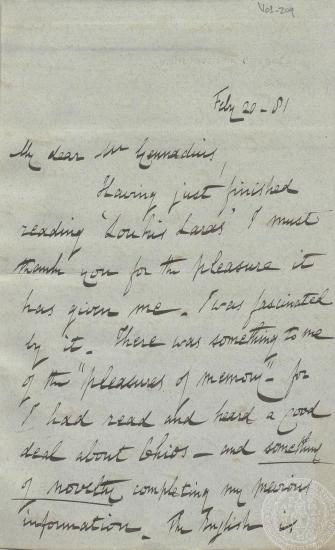 Vos-209
Feby 20 - 81
My dear Mr Gennadius,
Having just finished
reading "Loukis Laras" I must
thank you for the pleasure it
has given me. I was fascinated
by it. There was something to me
of the "pleasures of memory" - for
I had read and heard a good
deal about Chios - and something
of novelty completing my previous
information. The English is